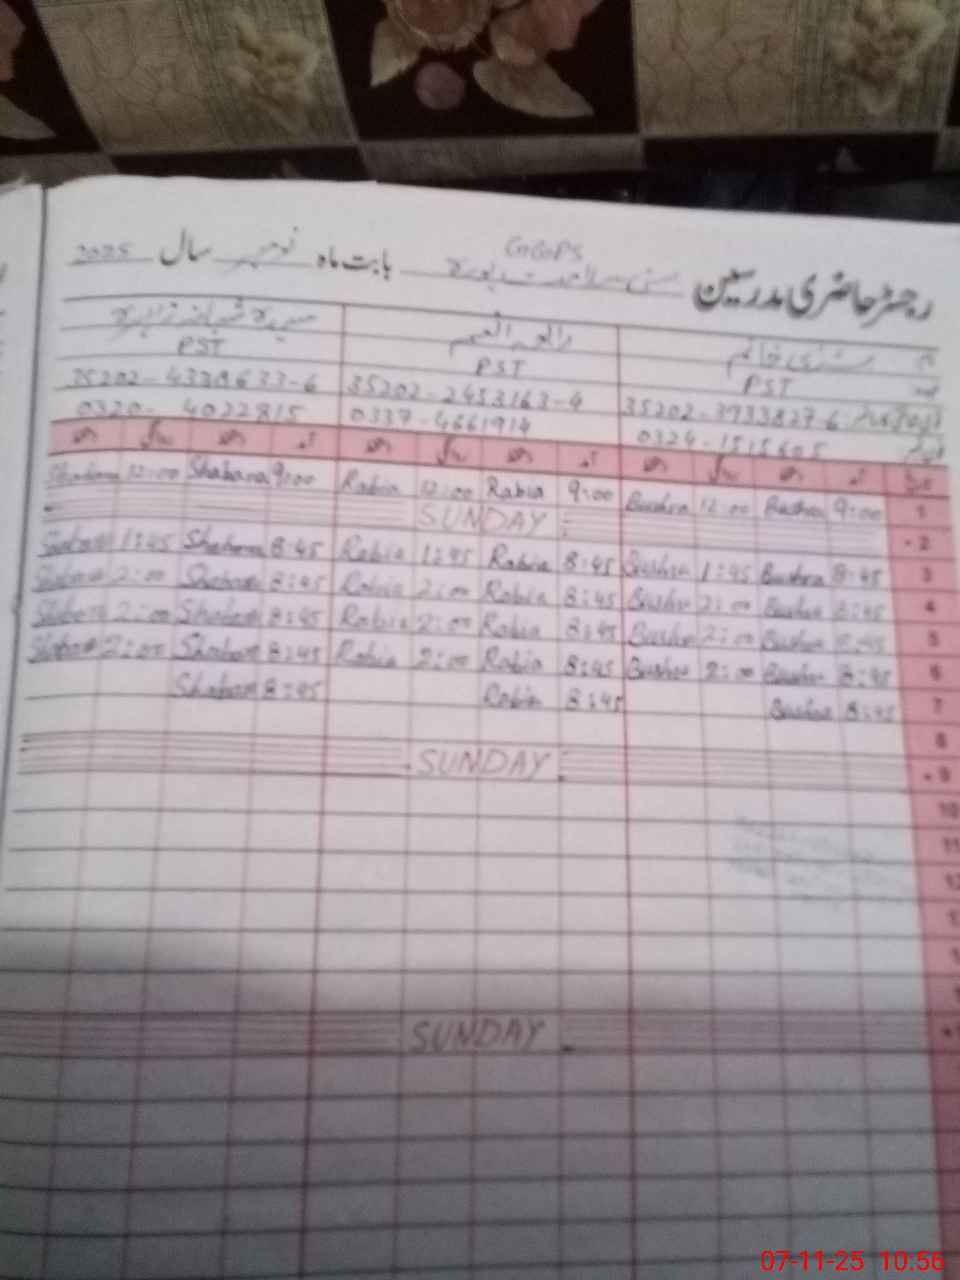 GGPS
رجسٹر حاضری مدرسین سلامت پورہ بابت ماہ نومبر سال 2025
PST PST PST
35202-3933827-6 35202-2453163-4 35202-4338633-6
0324-1515605 0337-4661914 0320-4022815
1 9:00 Bushra 12:00 Bushra 9:00 Rabia 12:00 Rabia 9:00 Shabana 12:00 Shabana
2 SUNDAY
3 8:45 Bushra 1:45 Bushra 8:45 Rabia 1:45 Rabia 8:45 Shabana 1:45 Shabana
4 8:45 Bushra 2:00 Bushra 8:45 Rabia 2:00 Rabia 8:45 Shabana 2:00 Shabana
5 8:45 Bushra 2:00 Bushra 8:45 Rabia 2:00 Rabia 8:45 Shabana 2:00 Shabana
6 8:45 Bushra 2:00 Bushra 8:45 Rabia 2:00 Rabia 8:45 Shabana 2:00 Shabana
7 8:45 Bushra 8:45 Rabia 8:45 Shabana
8
9 SUNDAY
10
11
SUNDAY
07-11-25 10:56